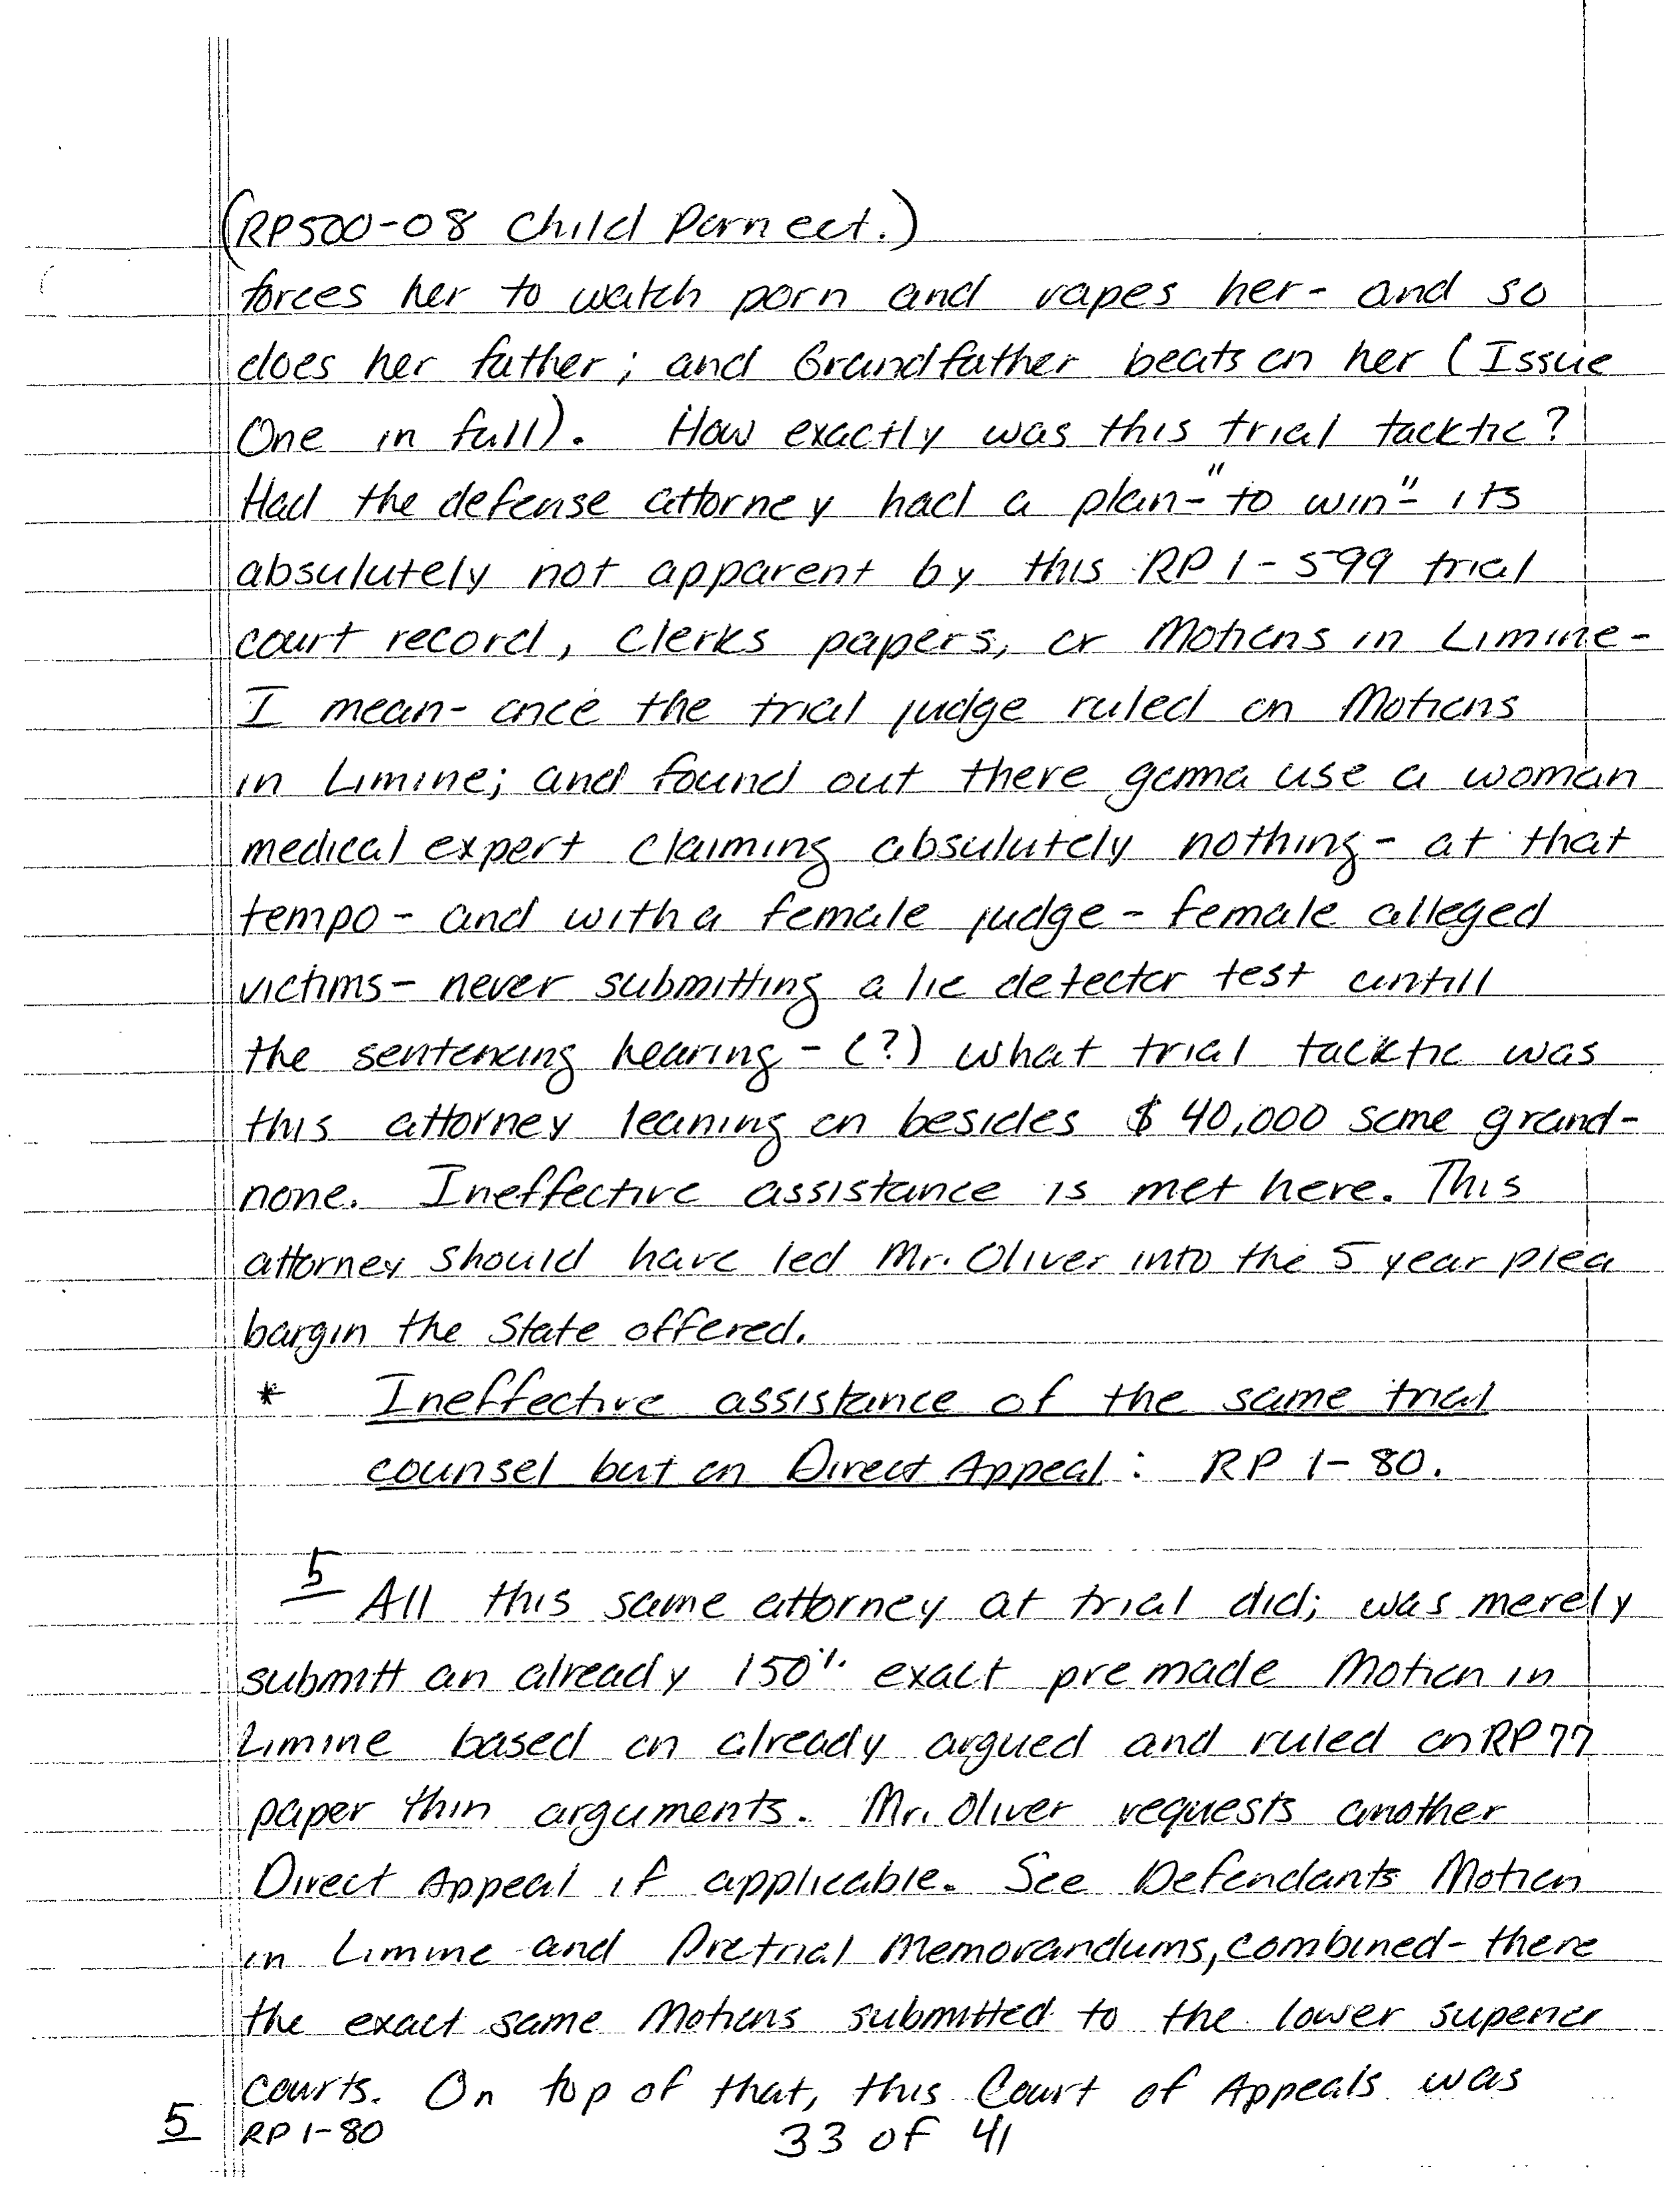 (RP500-08 Child Porn ect.)
forces her to watch porn and rapes her- and so
does her father; and Grandfather beats on her (Issue
One in full). How exactly was this trial tacktic?
Had the defense attorney had a plan-"to win"- its
absulutely not apparent by this RP 1-599 trial
court record, Clerks papers, or Motions in Limine-
I mean- once the trial judge ruled on Motions
in Limine; and found out there gonna use a woman
medical expert claiming absulutely nothing- at that
tempo- and with a female judge- female alleged
victims- never submitting a lie detector test untill
the sentencing hearing- (?) what trial tacktic was
this attorney leaning on besides $ 40,000 some grand-
none. Ineffective assistance is met here. This
attorney should have led Mr. Oliver into the 5 year plea
bargin the State offered.
* Ineffective assistance of the same trial
counsel but on Direct Appeal: RP 1-80.
5 All this same attorney at trial did; was merely
submitt an already 150% exact pre made Motion in
Limine based on already argued and ruled on RP 77
paper thin arguments. Mr. Oliver requests another
Direct Appeal if applicable. See Defendants Motion
in Limine and Pretrial Memorandums, combined- there
the exact same Motions submitted to the lower superior
courts. On top of that, this Court of Appeals was
5 RP 1-80
33 of 41